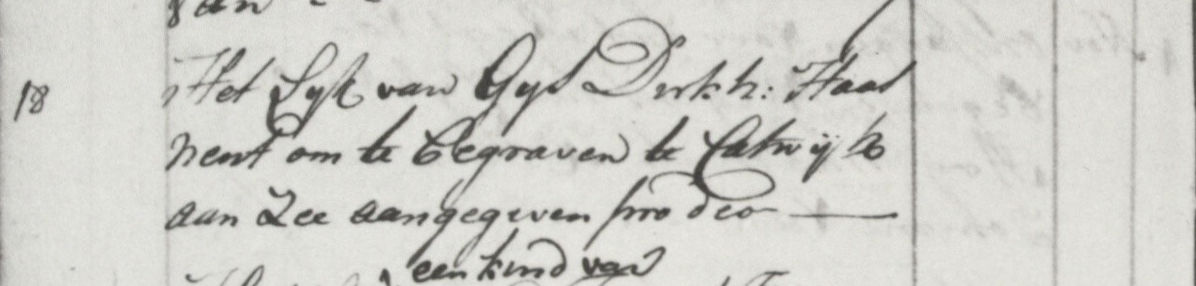 van
18 Het Lyk van Gys Dirkz: Haas
nent om te begraven te Catwijk
aan Zee aangegeven pro deo
een kind van